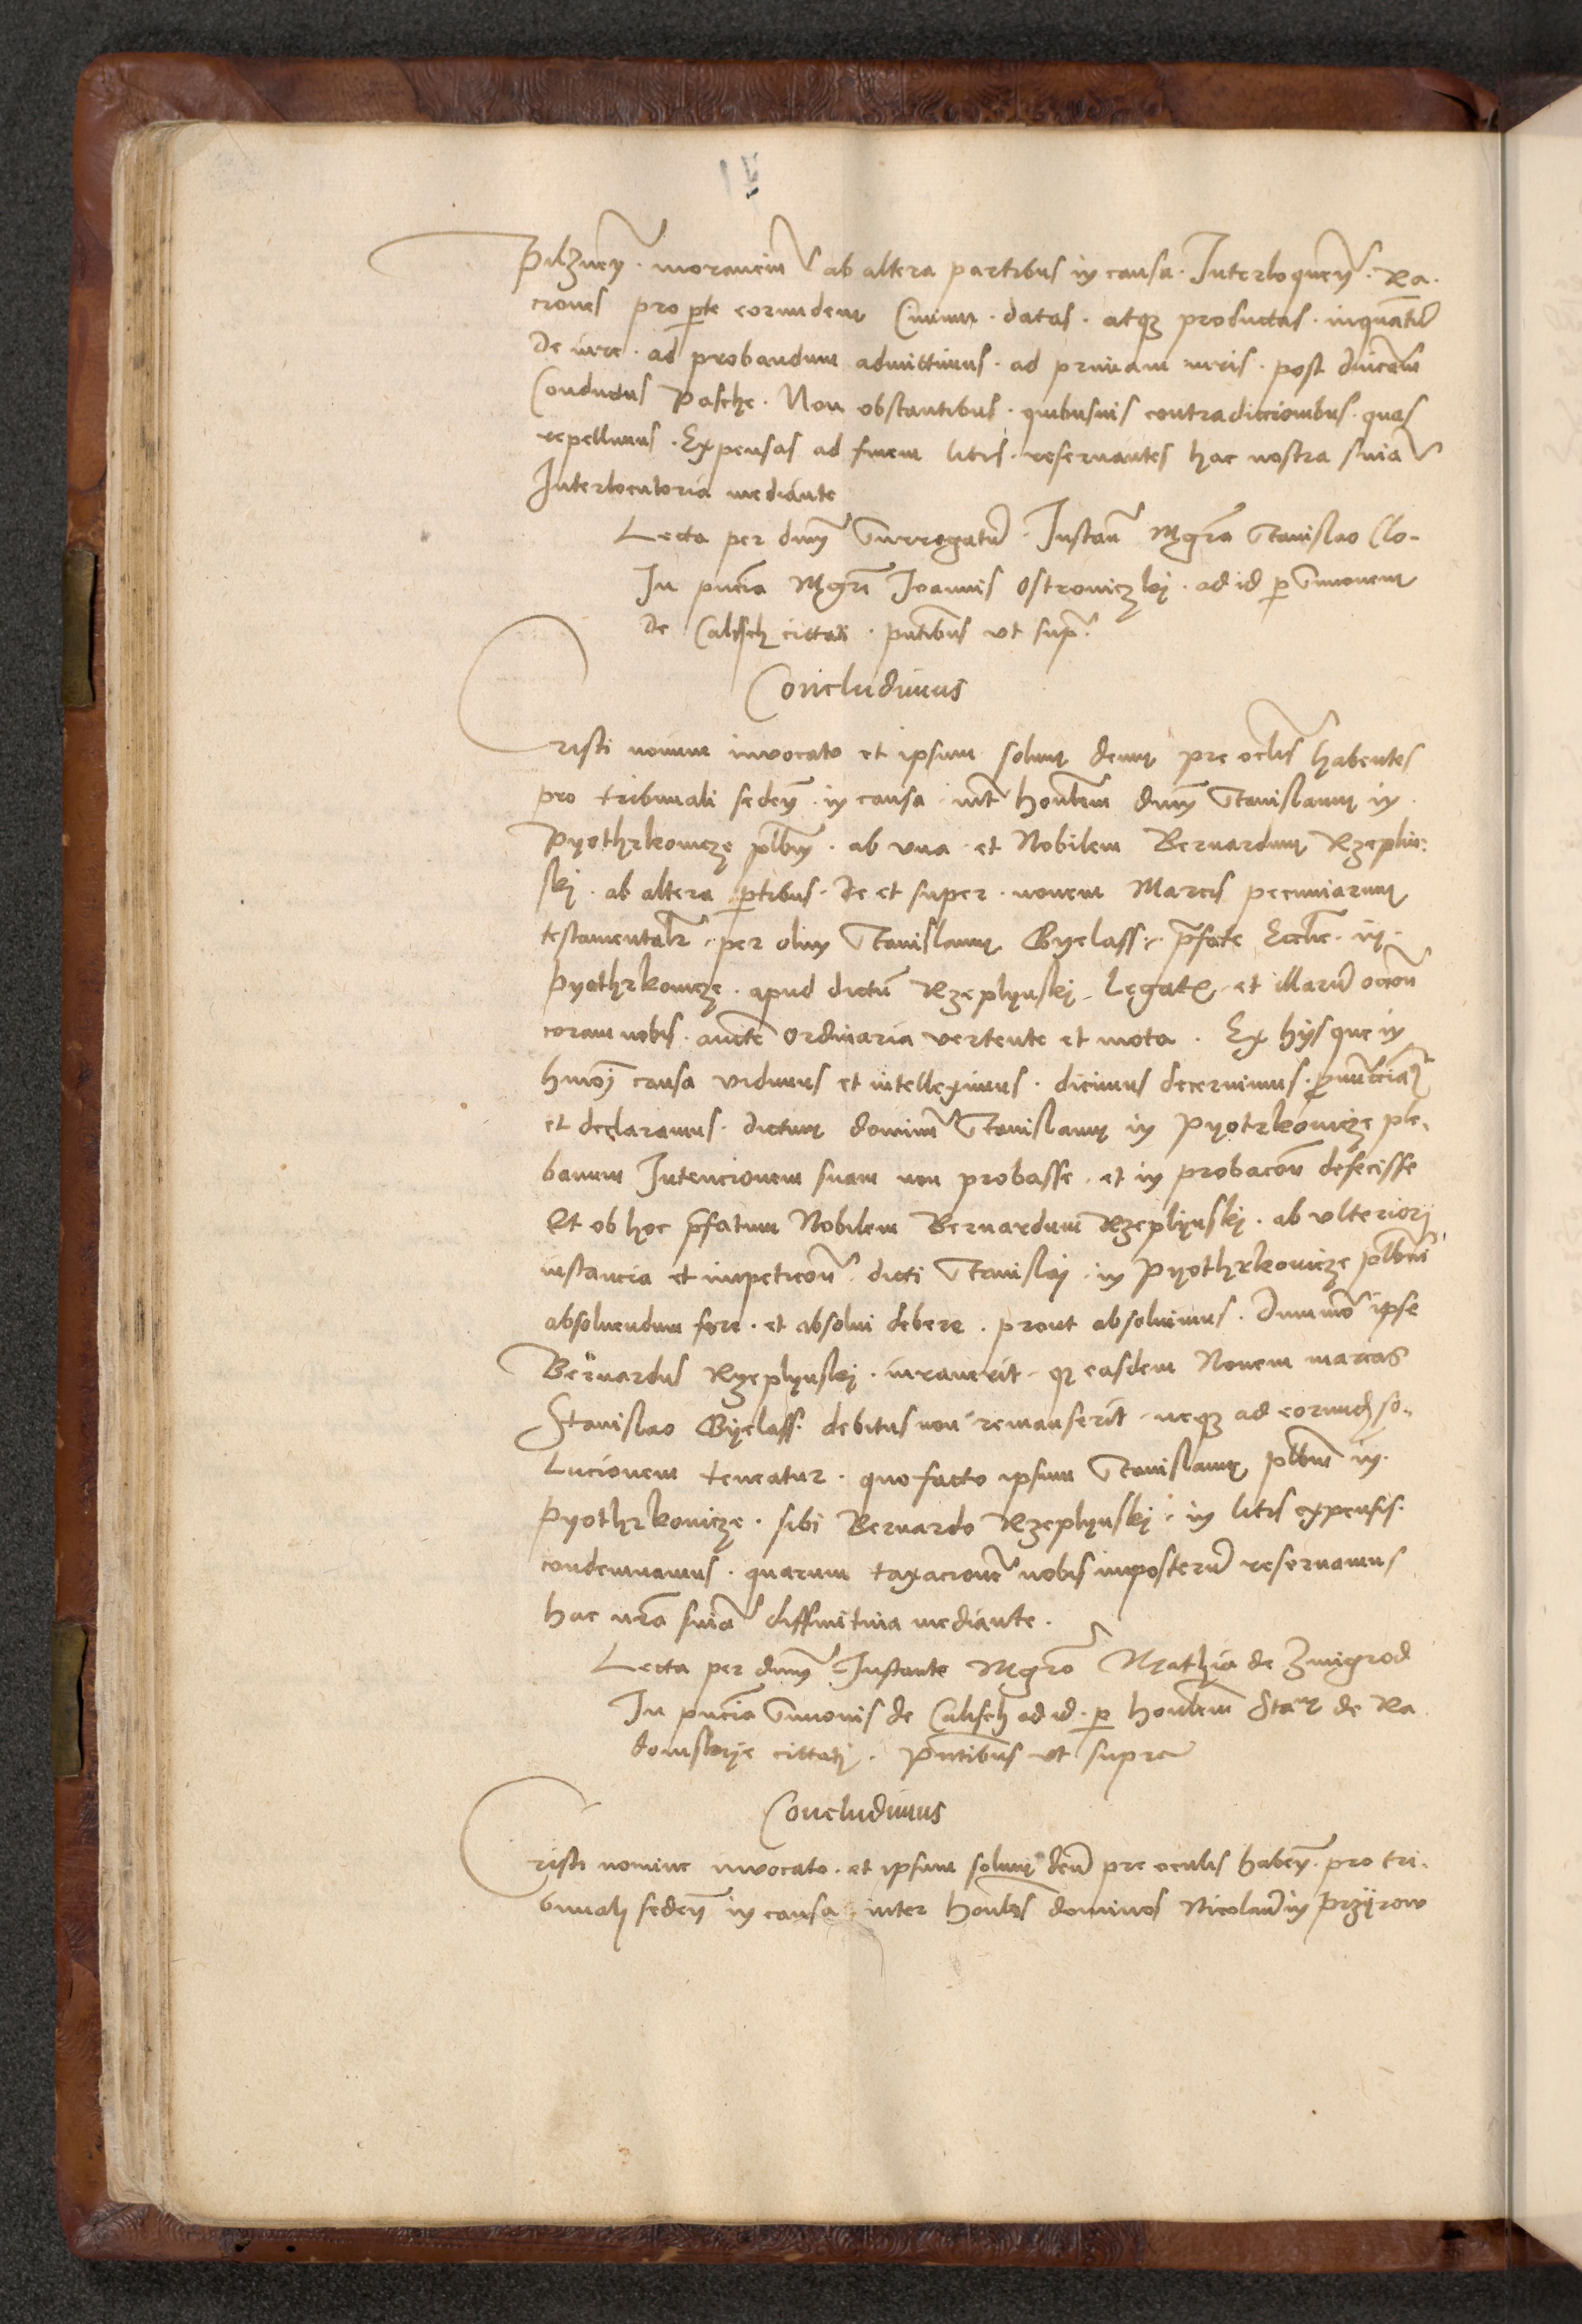 Pilznen̄ . moranciū ab altera partibus in causa . Interloquen̄ . Ra-
ciones pro pte eorundem Ciuium . datas . atqz productas . inquātū
De iure . ad probandum admittimus . ad primam iuris . post dnicam
Conductus Pasche . Non obstantibus . quibusuis contradiccionibus . quas
repellimus . Expensas ad finem litis . reseruantes hac nostra sn̄ia
Interlocutoria mediante
Lecta per dnm̄ Surrogatū . Instan̄ Mgr̄o Stanislao Clo-
In pn̄cia Mgr̄i Joannis Ostrowiczkj . ad id p Simonem
de Calisch cittati . pn̄tibus vt sup̄.
Concludimus
Cristi nomine invocato et ipsum solum deum pre oclis habentes
pro tribunali seden̄ . in causa . int̄ honlem dnm̄ Stanislaum in
Pyothrkowicze plbnm̄ . ab vna . et Nobilem Bernardum Rzeplin-
skj . ab altera ptibus . de et super . nouem Marcis pecuniarum
testamentalr̄ . per olim Stanislaum Byelass . p̄fate Eccl̄ie . in
Pyothrkowicze . apud dictū Rzeplynskj . Legat̄ . et illarū occōn̄
coram nobis . aucte ordinaria vertente et mota . Ex hys que in
hmōi causa vidimus et intelleximus . dicimus decernimus . pnuncciam̄
et declaramus . dictum dominū Stanislaum in Pyotrkowicze ple-
banum Intencionem suam non probasse . et in probacōn̄ defecisse
Et ob hoc p̄fatum Nobilem Bernardum Rzeplynskj . ab vlteriorj
instancia et impeticōn̄ . dicti Stanislaj . in Pyothrkowicze plbnī
absoluendum fore . et absolui debere . prout absoluimus . dummō ipse
Bernardus Rzeplynskj . iurauerit . qz easdem Nouem marcas
Stanislao Byelass . debitus non remanserit . neqz ad eorund̄ so-
Lucionem teneatur . quo facto ipsum Stanislaum plbnm̄ in
Pyothrkowicze . sibi Bernardo Rzeplynskj . in litis expensis .
condemnamus . quarum taxacionē nobis imposterū reseruamus
hac nr̄a sn̄ia diffinitiua mediante .
Lecta per dnm̄ Instante Mgr̄o Mathia de Zmigrod
In pn̄cia Simonis de Calisch ad id . p honlem Star de Ra
domskye cittatj . Pn̄tibus vt supra
Concludimus
Cristi nomine invocato . et ipsum solum deū pre oculis haben̄ . pro tri-
bunalj seden̄ in causa . inter honles dominos Nicolaū in Przyrow